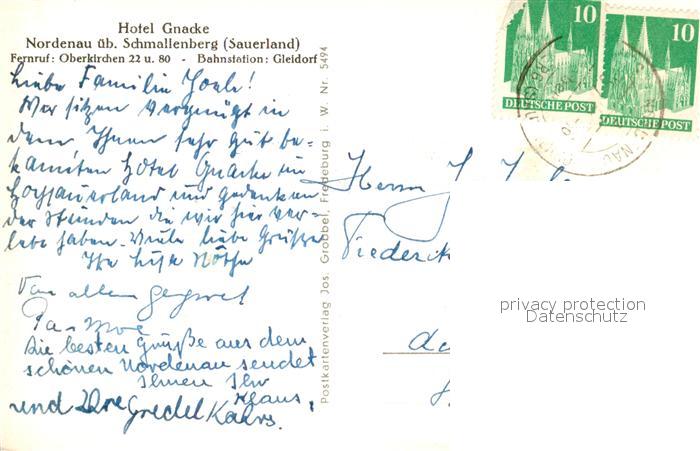 Hotel Gnacke
Nordenau üb. Schmallenberg (Sauerland)
Fernruf: Oberkirchen 22 u. 80 - Bahnstation: Gleidorf
Liebe Familie
Wir sitzen vergnügt in
dem, Ihnen sehr gut be-
kannten Hotel Gnacke im
Hochsauerland und gedenken
der Stunden die wir hier ver-
lebt haben. Viele liebe Grüße
Ihre
Von allem
Die besten Grüße aus dem
schönen Nordenau sendet
Ihnen Ihr
Klaus,
und Ihre Gredel
Postkartenverlag Jos. Grobbel, Fredeburg i. W. Nr. 5494
10
DEUTSCHE POST
10
DEUTSCHE POST
Herrn
privacy protection
Datenschutz